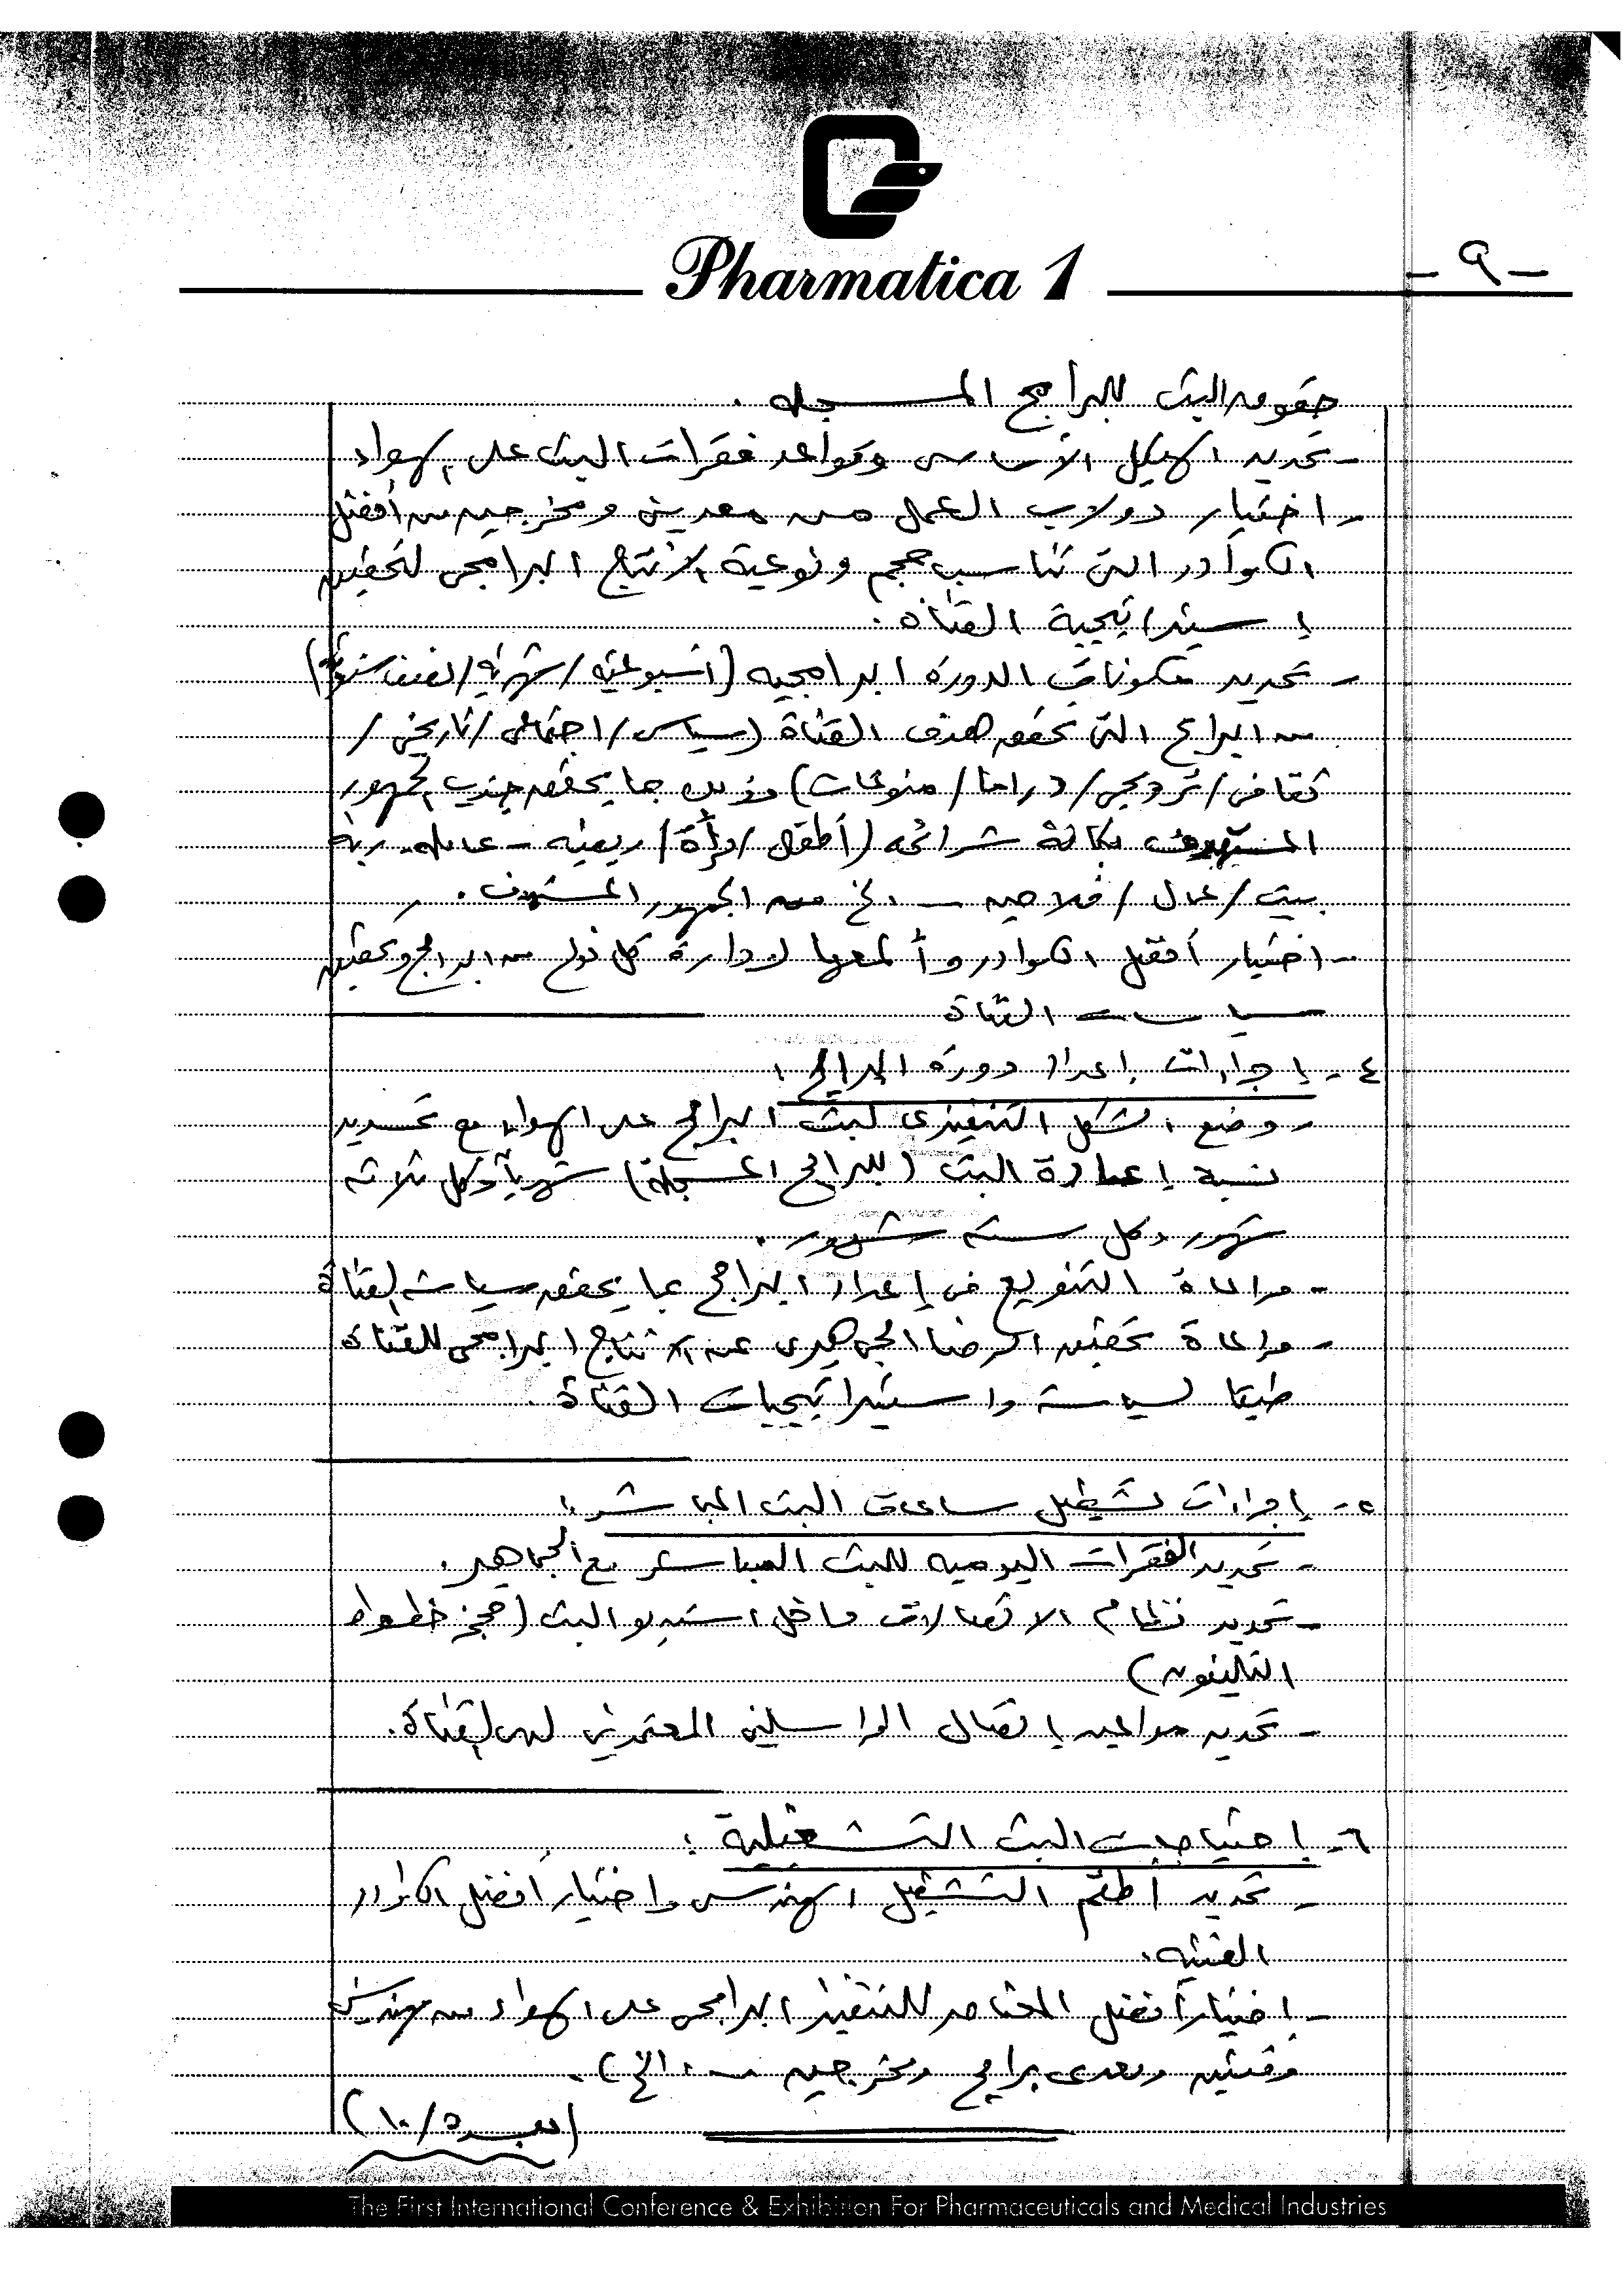 Pharmatica 1
- ٩ -
حقوق البث للبرامج المسجله .
- تحديد الهيكل الأساسى وقواعد فقرات البث على الهواء
- اختيار دولاب العمل من معدين ومخرجين من أفضل
الكوادر التى تناسب حجم ونوعية الانتاج البرامجى لتحقيق
إستيراتيجية القناة .
- تحديد مكونات الدورة البرامجيه (اسبوعيه / شهريه / نصف سنويه)
من البرامج التى تحقق هدف القناة (سياسى / اجتماعى / تاريخى /
ثقافى / ترويجى / دراما / منوعات) وذلك بما يحقق جذب الجمهور
المستهدف بكافة شرائحه (أطفال / مرأة / ريفيه - عامله - ربة
بيت / عمال / فلاحين ــ الخ من الجمهور المستهدف .
- اختيار أفضل الكوادر وألمعها لإدارة كل نوع من البرامج وتحقيق
سياسات القناة
٤ - إجراءات إعداد دورة البرامج :
- وضع الشكل التنفيذى لبث البرامج على الهواء مع تحديد
نسبة إعادة البث (للبرامج المسجلة) شهرياً وكل ثلاثه
شهور وكل سته شهور .
- مراعاة التنويع فى إعداد البرامج بما يحقق سياسة القناة
- مراعاة تحقيق الرضا الجماهيرى عن الانتاج البرامجى للقناة
طبقا لسياسة واستيراتيجيات القناة .
٥ - إجراءات تشغيل ساعات البث المباشر :
- تحديد الفقرات اليوميه للبث المباشر مع الجماهير .
- تحديد نظام الاتصالات داخل استديو البث (حجز خطوط
التليفون)
- تحديد مواعيد إتصال المراسلين المعتمدين لدى القناة .
٦ - إحتياجات البث التشغيلية :
- تحديد أطقم التشغيل الهندسى واختيار أفضل الكوادر
الفنيه .
- اختيار أفضل العناصر للتنفيذ البرامجى على الهواء من مهندسين
وفنيين ومعدى برامج ومخرجين ــ الخ) .
(بعده / ١٠)
The First International Conference & Exhibition For Pharmaceuticals and Medical Industries